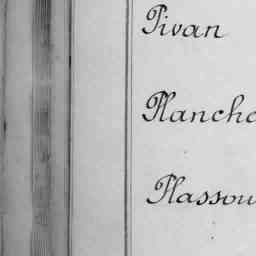 Pivan
Plancho
Plassou